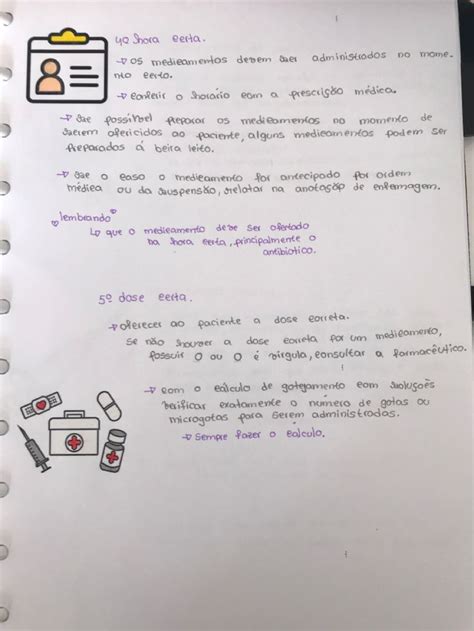 4º hora certa.
→ os medicamentos devem ser administrados no mome-
nto certo.
→ conferir o horário com a prescrição médica.
→ se possível preparar os medicamentos no momento de
serem oferecidos ao paciente, alguns medicamentos podem ser
preparados á beira leito.
→ se o caso o medicamento for antecipado por ordem
médica ou da suspensão, relatar na anotação de enfermagem.
lembrando
↳ que o medicamento deve ser ofertado
na hora certa, principalmente o
antibiotico.
5º dose certa.
→ oferecer ao paciente a dose correta.
se não houver a dose correta por um medicamento,
possuir 0 ou 0 é vírgula, consultar a farmacêutico.
→ com o cálculo de gotejamento com soluções
verificar exatamente o número de gotas ou
microgotas para serem administradas.
→ sempre fazer o cálculo.